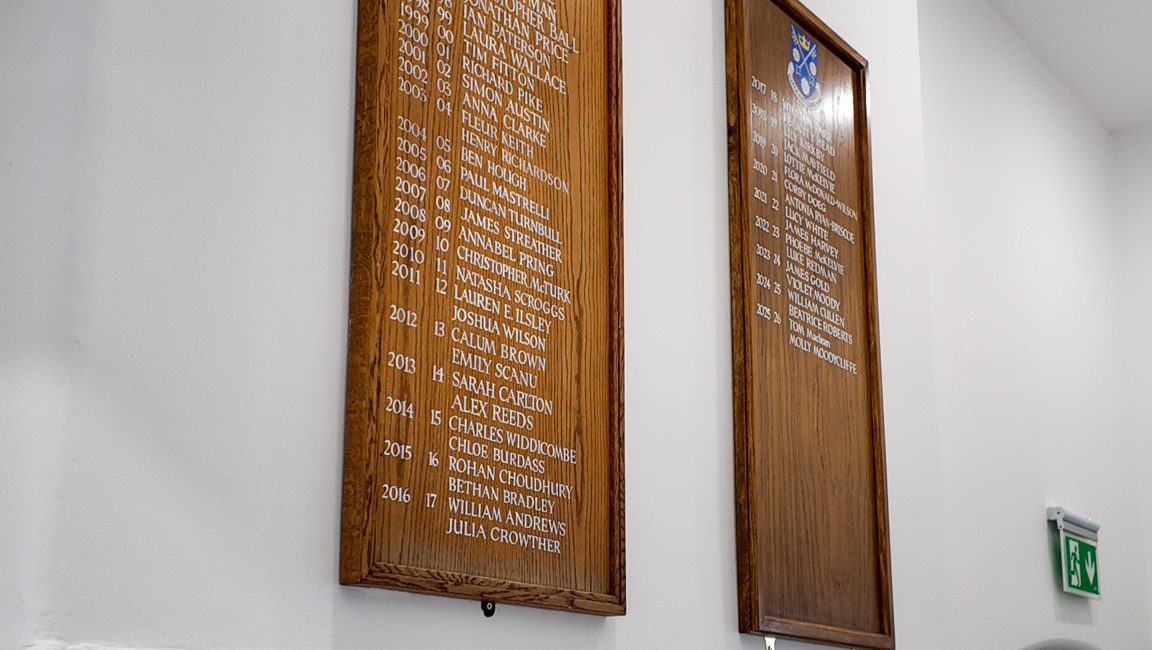 BALL
JONATHAN PRICE
98 IAN PATERSON
1998 99 LAURA WALLACE
1999 00 TIM FITTON
2000 01 RICHARD PIKE
2001 02 SIMON AUSTIN
2002 03 ANNA CLARKE
2003 04 FLEUR KEITH
HENRY RICHARDSON
2004 05 BEN HOUGH
2005 06 PAUL MASTRELLI
2006 07 DUNCAN TURNBULL
2007 08 JAMES STREATHER
2008 09 ANNABEL PRING
2009 10 CHRISTOPHER McTURK
2010 11 NATASHA SCROGGS
2011 12 LAUREN E. ILSLEY
JOSHUA WILSON
2012 13 CALUM BROWN
EMILY SCANU
2013 14 SARAH CARLTON
ALEX REEDS
2014 15 CHARLES WIDDICOMBE
CHLOE BURDASS
2015 16 ROHAN CHOUDHURY
BETHAN BRADLEY
2016 17 WILLIAM ANDREWS
JULIA CROWTHER
2017 18
2018 19 LILY KIRKBY
JACK MAYFIELD
2019 20 LOTTIE McKELVIE
FLORA McDONALD-WILSON
2020 21 CORBY DOEG
ANTONIA RYAN-BRISCOE
2021 22 LUCY WHITE
JAMES HARVEY
2022 23 PHOEBE McKELVIE
LUKE REDMAN
2023 24 JAMES GOLD
VIOLET MOODY
2024 25 WILLIAM CULLEN
BEATRICE ROBERTS
2025 26 TOM Maclean
MOLLY MOODYCLIFFE